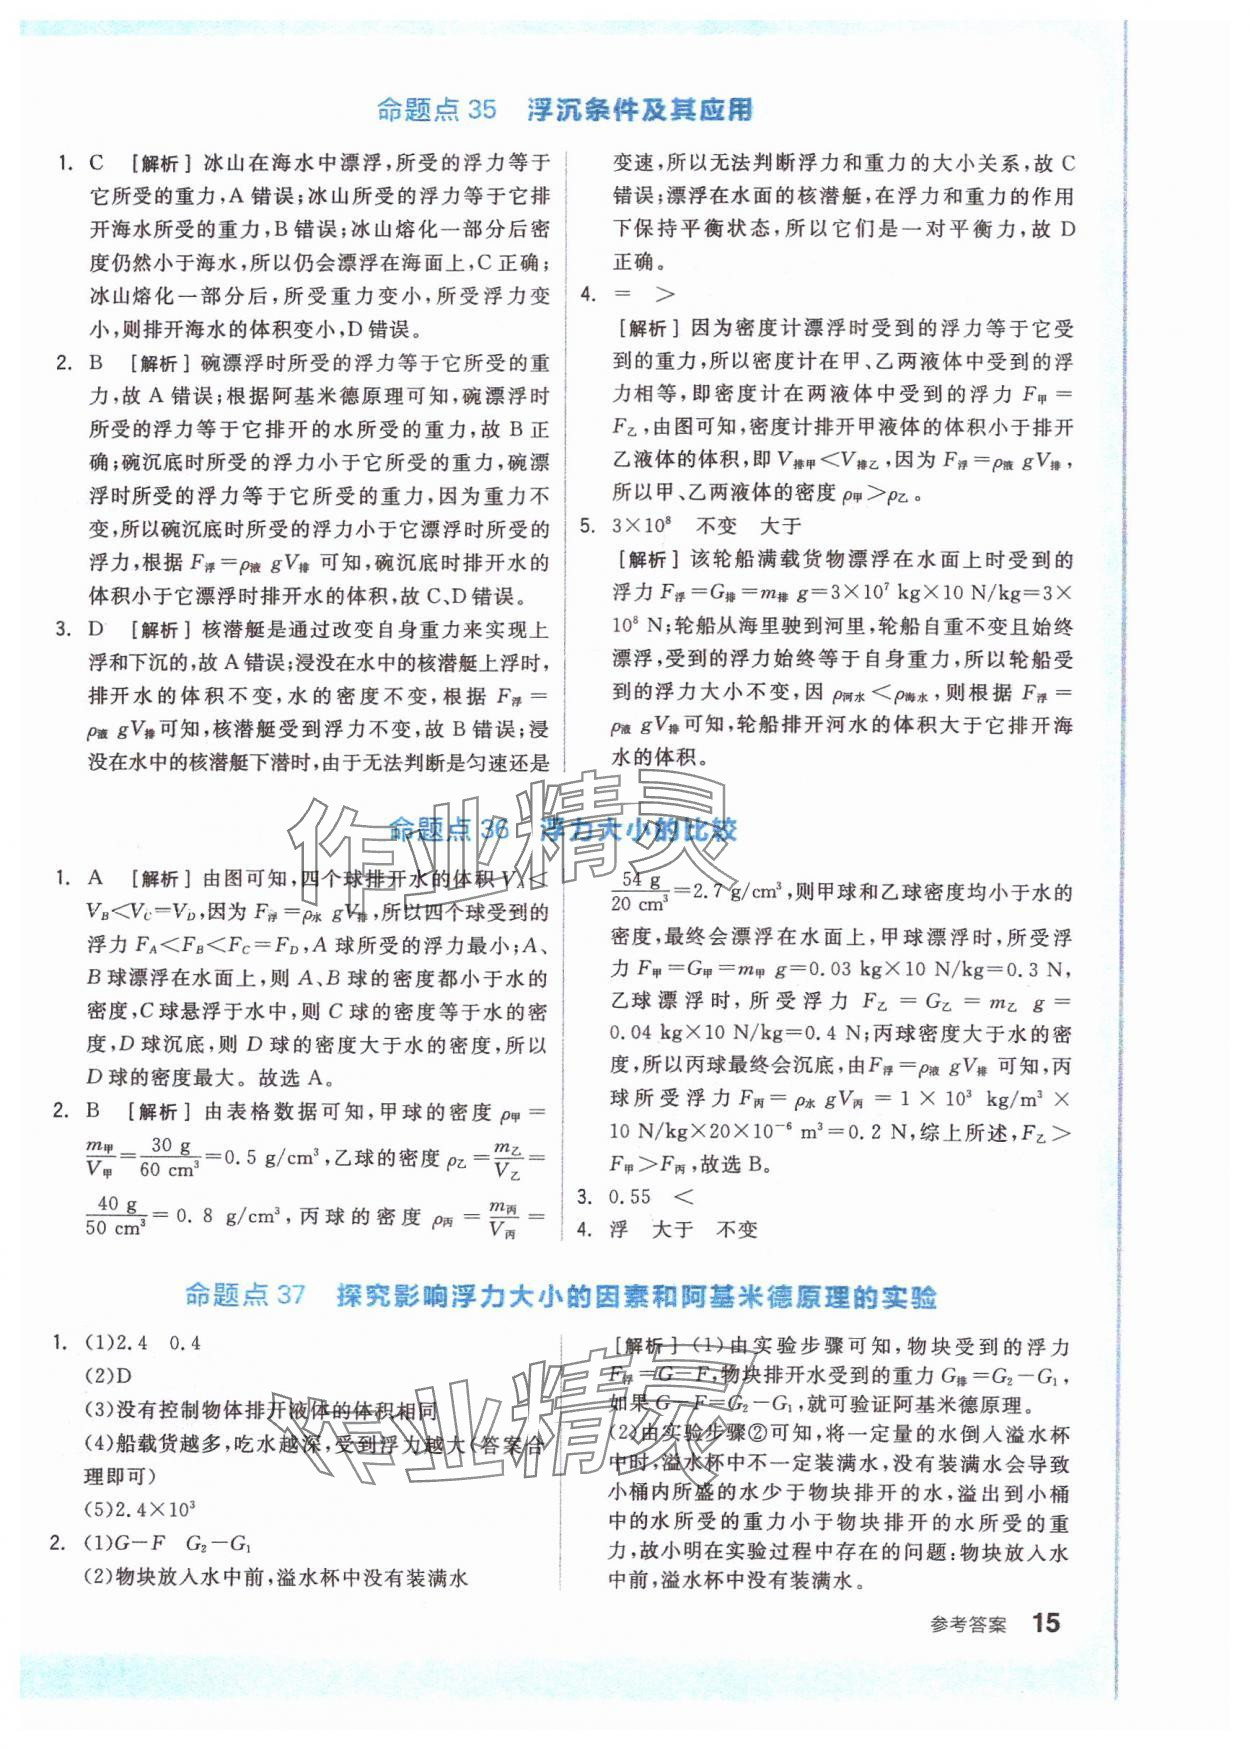 命题点 35 浮沉条件及其应用
1. C [解析] 冰山在海水中漂浮,所受的浮力等于
它所受的重力,A 错误;冰山所受的浮力等于它排
开海水所受的重力,B 错误;冰山熔化一部分后密
度仍然小于海水,所以仍会漂浮在海面上,C 正确;
冰山熔化一部分后,所受重力变小,所受浮力变
小,则排开海水的体积变小,D 错误。
2. B [解析] 碗漂浮时所受的浮力等于它所受的重
力,故 A 错误;根据阿基米德原理可知,碗漂浮时
所受的浮力等于它排开的水所受的重力,故 B 正
确;碗沉底时所受的浮力小于它所受的重力,碗漂
浮时所受的浮力等于它所受的重力,因为重力不
变,所以碗沉底时所受的浮力小于它漂浮时所受的
浮力,根据 F浮=ρ液 gV排 可知,碗沉底时排开水的
体积小于它漂浮时排开水的体积,故 C、D 错误。
3. D [解析] 核潜艇是通过改变自身重力来实现上
浮和下沉的,故 A 错误;浸没在水中的核潜艇上浮时,
排开水的体积不变,水的密度不变,根据 F浮=
ρ液 gV排可知,核潜艇受到浮力不变,故 B 错误;浸
没在水中的核潜艇下潜时,由于无法判断是匀速还是
变速,所以无法判断浮力和重力的大小关系,故 C
错误;漂浮在水面的核潜艇,在浮力和重力的作用
下保持平衡状态,所以它们是一对平衡力,故 D
正确。
4. = >
[解析] 因为密度计漂浮时受到的浮力等于它受
到的重力,所以密度计在甲、乙两液体中受到的浮
力相等,即密度计在两液体中受到的浮力 F甲=
F乙,由图可知,密度计排开甲液体的体积小于排开
乙液体的体积,即 V排甲<V排乙,因为 F浮=ρ液 gV排,
所以甲、乙两液体的密度 ρ甲>ρ乙。
5. 3×10⁸ 不变 大于
[解析] 该轮船满载货物漂浮在水面上时受到的
浮力 F浮=G排=m排 g=3×10⁷ kg×10 N/kg=3×
10⁸ N;轮船从海里驶到河里,轮船自重不变且始终
漂浮,受到的浮力始终等于自身重力,所以轮船受
到的浮力大小不变,因 ρ河水<ρ海水,则根据 F浮=
ρ液 gV排可知,轮船排开河水的体积大于它排开海
水的体积。
命题点 36 浮力大小的比较
1. A [解析] 由图可知,四个球排开水的体积 V_A<
V_B<V_C=V_D,因为 F浮=ρ水 gV排,所以四个球受到的
浮力 F_A<F_B<F_C=F_D,A 球所受的浮力最小;A、
B 球漂浮在水面上,则 A、B 球的密度都小于水的
密度,C 球悬浮于水中,则 C 球的密度等于水的密
度,D 球沉底,则 D 球的密度大于水的密度,所以
D 球的密度最大。故选 A。
2. B [解析] 由表格数据可知,甲球的密度 ρ甲=
m甲/V甲=30 g/60 cm³=0.5 g/cm³,乙球的密度 ρ乙=m乙/V乙=
40 g/50 cm³=0.8 g/cm³,丙球的密度 ρ丙=m丙/V丙=
54 g/20 cm³=2.7 g/cm³,则甲球和乙球密度均小于水的
密度,最终会漂浮在水面上,甲球漂浮时,所受浮
力 F甲=G甲=m甲 g=0.03 kg×10 N/kg=0.3 N,
乙球漂浮时,所受浮力 F乙=G乙=m乙 g=
0.04 kg×10 N/kg=0.4 N;丙球密度大于水的密
度,所以丙球最终会沉底,由F浮=ρ液 gV排 可知,丙
球所受浮力 F丙=ρ水 gV丙=1×10³ kg/m³×
10 N/kg×20×10⁻⁶ m³=0.2 N,综上所述,F乙>
F甲>F丙,故选 B。
3. 0.55 <
4. 浮 大于 不变
命题点 37 探究影响浮力大小的因素和阿基米德原理的实验
1. (1)2.4 0.4
(2)D
(3)没有控制物体排开液体的体积相同
(4)船载货越多,吃水越深,受到浮力越大(答案合
理即可)
(5)2.4×10³
2. (1)G−F G₂−G₁
(2)物块放入水中前,溢水杯中没有装满水
[解析] (1)由实验步骤可知,物块受到的浮力
F浮=G−F,物块排开水受到的重力 G排=G₂−G₁,
如果 G−F=G₂−G₁,就可验证阿基米德原理。
(2)由实验步骤②可知,将一定量的水倒入溢水杯
中时,溢水杯中不一定装满水,没有装满水会导致
小桶内所盛的水少于物块排开的水,溢出到小桶
中的水所受的重力小于物块排开的水所受的重
力,故小明在实验过程中存在的问题:物块放入水
中前,溢水杯中没有装满水。
参考答案 15
作业精灵
作业精灵